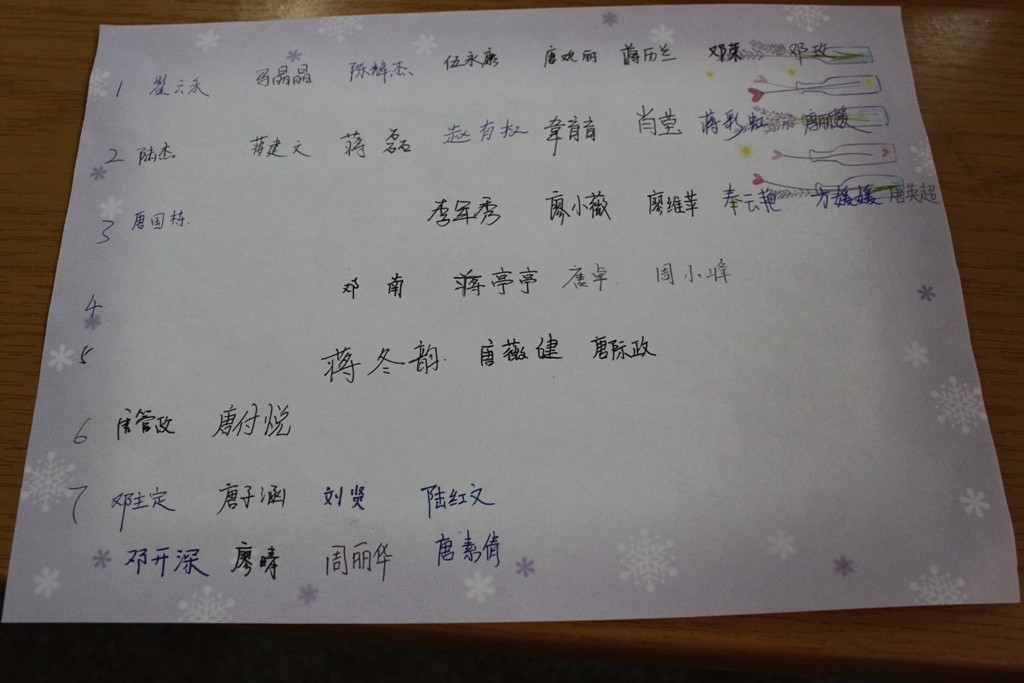 1 翟云禾 马晶晶 陈辉杰 伍永康 唐欢丽 蒋历兰 邓荣 邓玫
2 陆杰 蒋建文 蒋磊 赵有权 韦育育 肖莹 蒋彩虹 唐丽媛
3 唐国栋 李军秀 廖小薇 廖维苹 奉云艳 方媛媛 唐英超
4 邓南 蒋亭亭 唐卓 周小峰
5 蒋冬韵 唐薇健 唐际政
6 唐管政 唐付悦
7 邓主定 唐子涵 刘贤 陆红文
邓开深 廖畴 周丽华 唐素倩